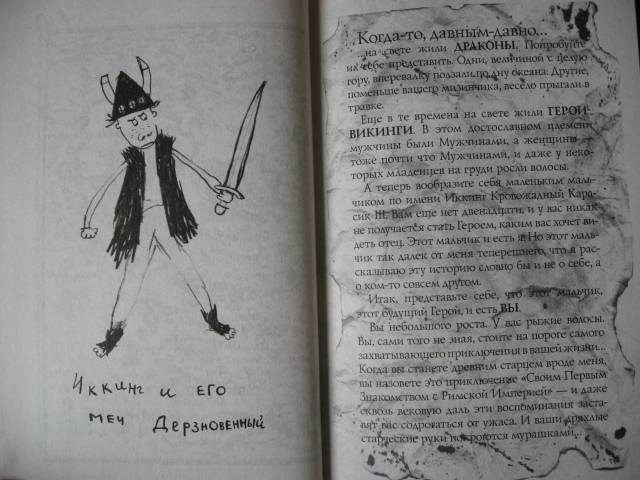 Иккинг и его
меч Дерзновенный
Когда-то, давным-давно...
...на свете жили ДРАКОНЫ. Попробуйте
их себе представить. Одни, величиной с целую
гору, вперевалку ползали по дну океана. Другие,
поменьше вашего мизинчика, весело прыгали в
травке.
Еще в те времена на свете жили ГЕРОИ-
ВИКИНГИ. В этом достославном племени
мужчины были Мужчинами, а женщины —
тоже почти что Мужчинами, и даже у неко-
торых младенцев на груди росли волосы.
А теперь вообразите себя маленьким маль-
чиком по имени Иккинг Кровожадный Кара-
сик III. Вам еще нет двенадцати, и у вас никак
не получается стать Героем, каким вас хочет ви-
деть отец. Этот мальчик и есть я. Но этот маль-
чик так далек от меня теперешнего, что я рас-
сказываю эту историю словно бы и не о себе, а
о ком-то совсем другом.
Итак, представьте себе, что этот мальчик,
этот будущий Герой, и есть ВЫ.
Вы небольшого роста. У вас рыжие волосы.
Вы, сами того не зная, стоите на пороге самого
захватывающего приключения в вашей жизни...
Когда вы станете древним старцем вроде меня,
вы назовете это приключение «Своим Первым
Знакомством с Римской Империей» — и даже
сквозь вековую даль эти воспоминания заста-
вят вас содрогаться от ужаса. И ваши дряхлые
старческие руки покроются мурашками...